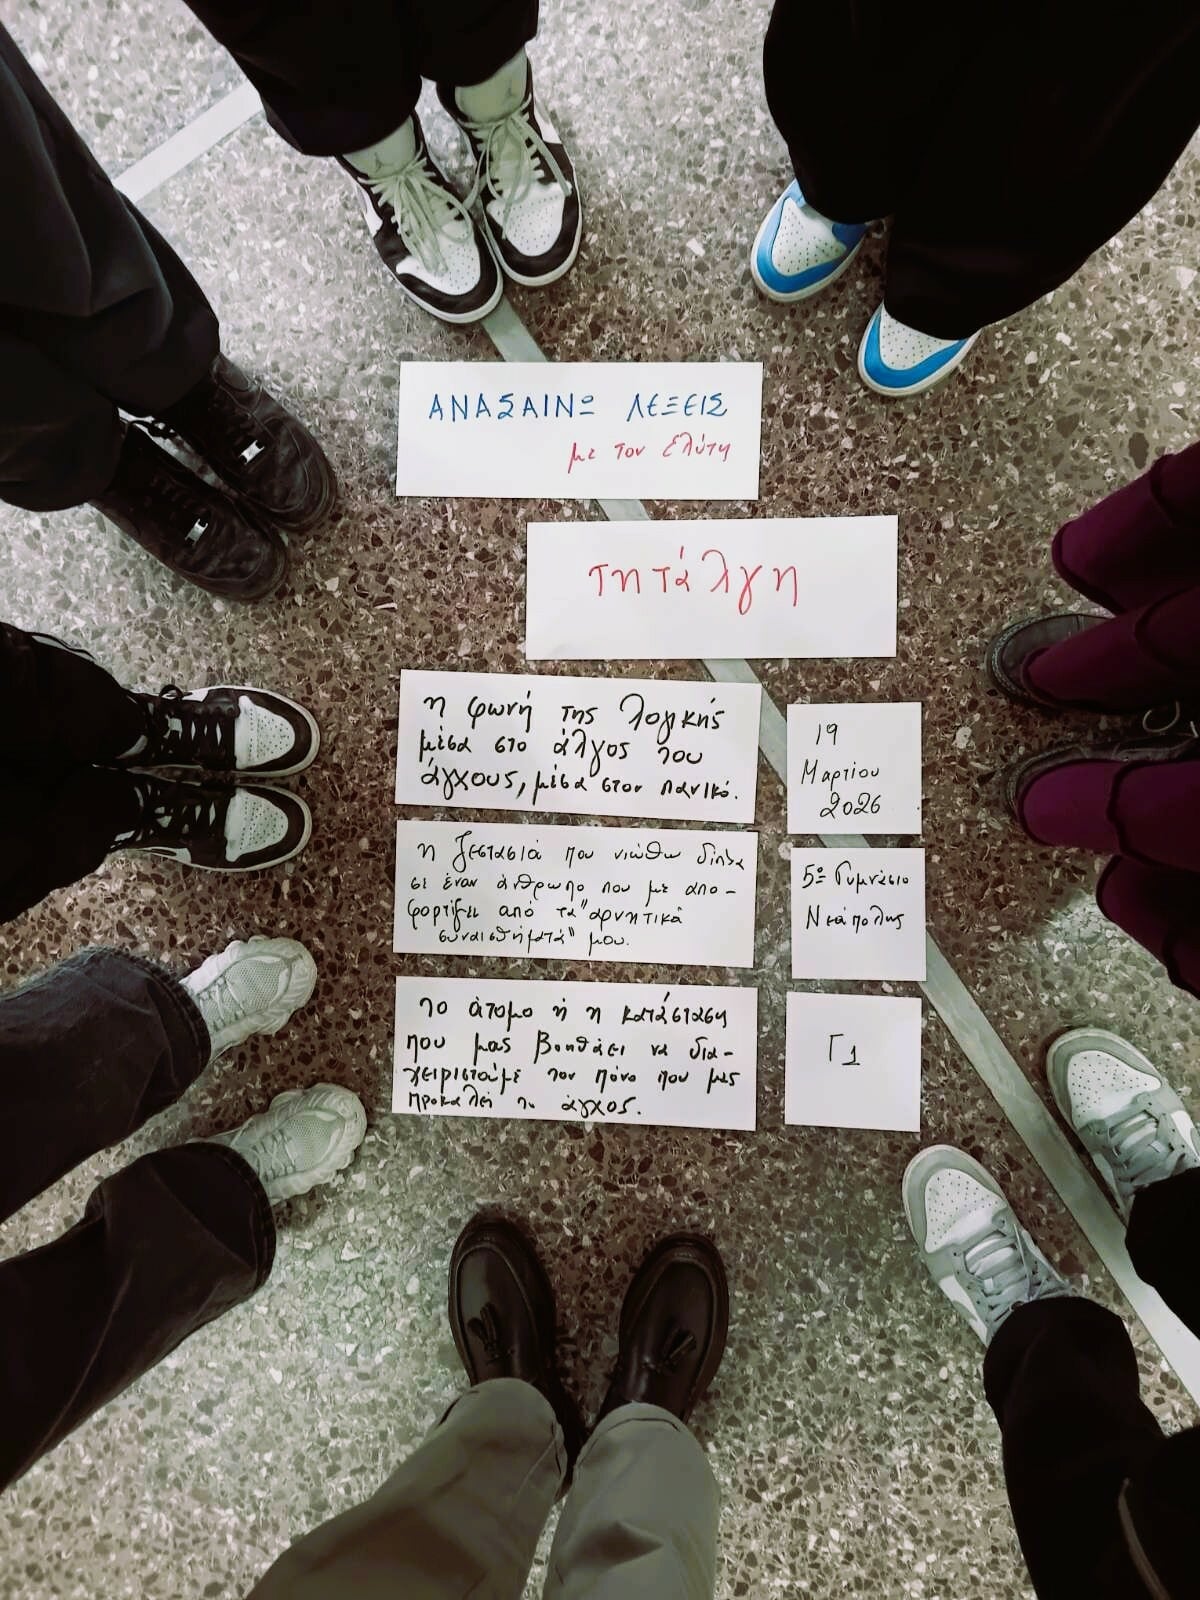 ΑΝΑΣΑΙΝΩ ΛΕΞΕΙΣ
με τον Ελύτη
τητάλγη
η φωνή της λογικής
μέσα στο άλγος του
άγχους, μέσα στον πανικό.
19
Μαρτίου
2026
η ζεστασιά που νιώθω δίπλα
σε έναν άνθρωπο που με απο-
φορτίζει από τα "αρνητικά
συναισθήματά" μου.
5ο Γυμνάσιο
Νεάπολης
το άτομο ή η κατάσταση
που μας βοηθάει να δια-
χειριστούμε τον πόνο που μας
προκαλεί το άγχος.
Γ1